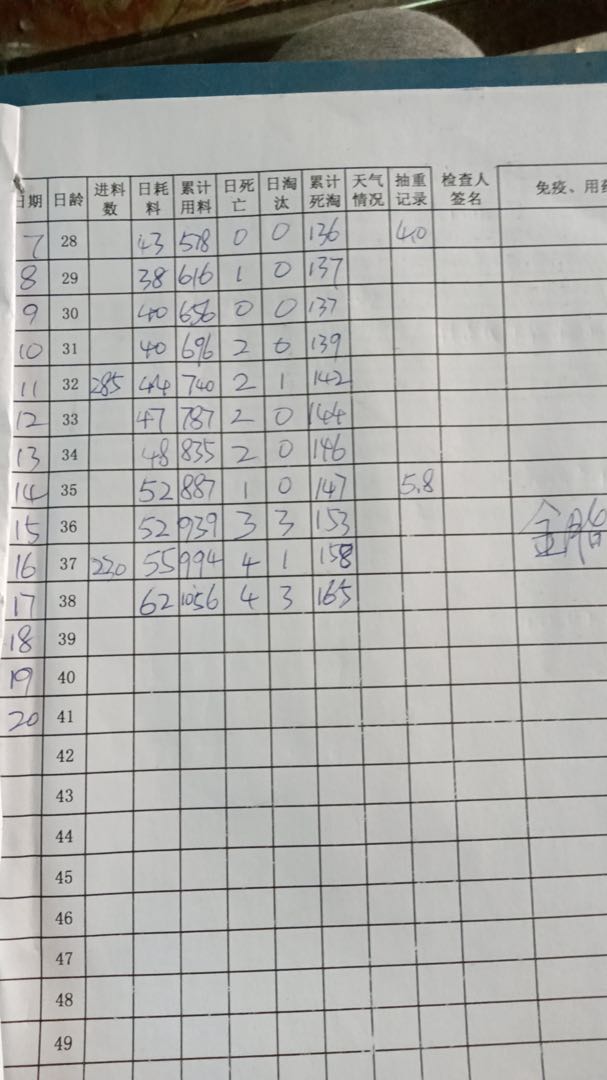 日期 日龄 进料数 日耗料 累计用料 日死亡 日淘汰 累计死淘 天气情况 抽重记录 检查人签名 免疫、用药
7 28 43 578 0 0 136 4.0
8 29 38 616 1 0 137
9 30 40 656 0 0 137
10 31 40 696 2 0 139
11 32 285 44 740 2 1 142
12 33 47 787 2 0 144
13 34 48 835 2 0 146
14 35 52 887 1 0 147 5.8
15 36 52 939 3 3 153 金
16 37 220 55 994 4 1 158
17 38 62 1056 4 3 165
18 39
19 40
20 41
42
43
44
45
46
47
48
49